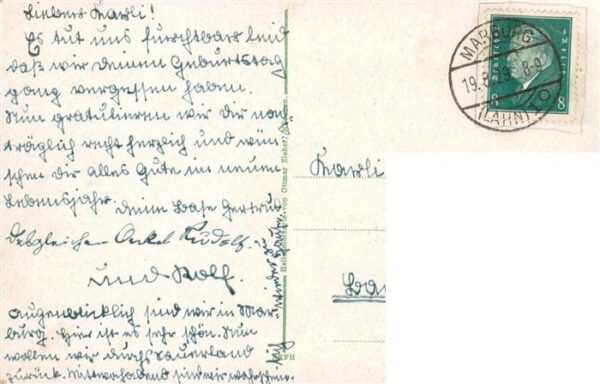 Lieber Karli!
Es tut uns furchtbar leid
daß wir deinen Geburtstag
ganz vergessen haben.
Nun gratulieren wir Dir nach-
träglich recht herzlich und wün-
schen dir alles Gute im neuen
Lebensjahr. Deine Base Gertrud
desgleichen Onkel Rudolf.
und Rolf.
Augenblicklich sind wir in Mar-
burg. Hier ist es sehr schön. Nun
wollen wir durchs Sauerland
zurück. Mittwochabend sind wir wahrschein-
lich wieder zu Hause
von Ottmar Zieher
MARBURG
19.8. 8-9
(LAHN)
Deutsches Reich
8 8
Karli